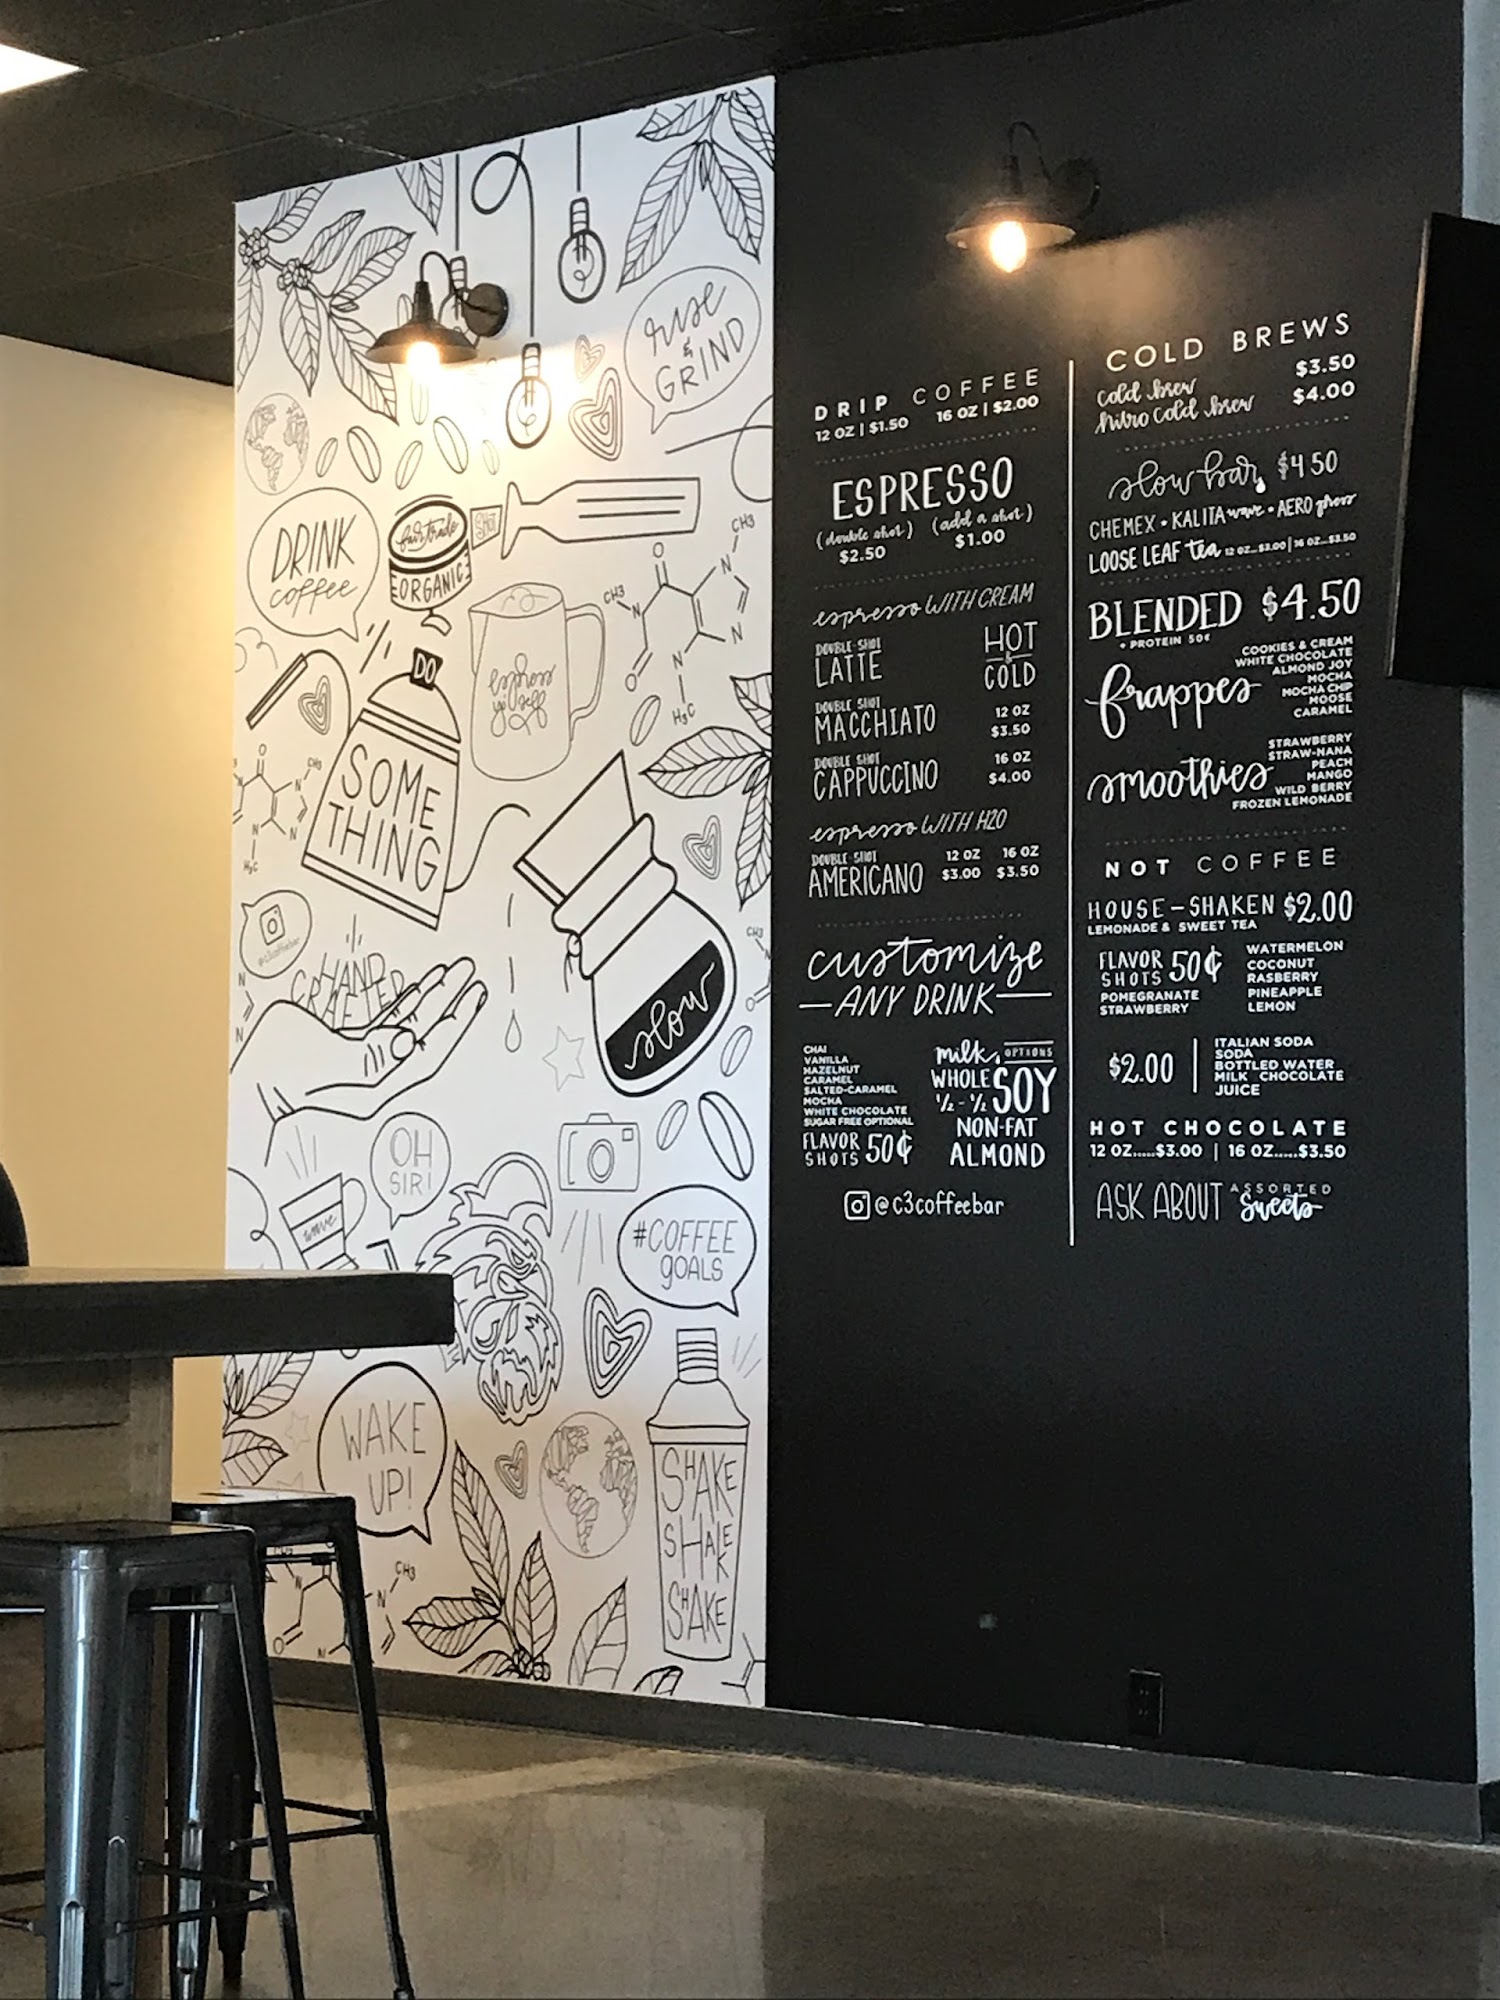 rise
&
GRIND
DRINK
coffee
fair trade
ORGANIC
SHOT
CH3
CH3
N
N
N
N
H3C
DO
SOME
THING
espresso
yo'self
O
CH3
N
N
H3C
@c3coffeebar
HAND
CRAFTED
slow
CH3
N
N
OH
SIR!
wave
#COFFEE
GOALS
WAKE
UP!
SHAKE
SHAKE
SHAKE
CH3
CH3
N
N
O
DRIP COFFEE
12 OZ | $1.50 16 OZ | $2.00
ESPRESSO
(double shot) (add a shot)
$2.50 $1.00
espresso WITH CREAM
DOUBLE SHOT
LATTE
HOT
&
COLD
DOUBLE SHOT
MACCHIATO
12 OZ
$3.50
DOUBLE SHOT
CAPPUCCINO
16 OZ
$4.00
espresso WITH H2O
DOUBLE SHOT
AMERICANO
12 OZ 16 OZ
$3.00 $3.50
customize
ANY DRINK
CHAI
VANILLA
HAZELNUT
CARAMEL
SALTED-CARAMEL
MOCHA
WHITE CHOCOLATE
SUGAR FREE OPTIONAL
FLAVOR
SHOTS 50¢
milk OPTIONS
WHOLE SOY
½ - ½
NON-FAT
ALMOND
@c3coffeebar
COLD BREWS
cold brew $3.50
nitro cold brew $4.00
slow bar $4.50
CHEMEX • KALITA wave • AERO press
LOOSE LEAF tea 12 OZ...$3.00 | 16 OZ...$3.50
BLENDED $4.50
+ PROTEIN 50¢
frappes
COOKIES & CREAM
WHITE CHOCOLATE
ALMOND JOY
MOCHA
MOCHA CHIP
MOOSE
CARAMEL
smoothies
STRAWBERRY
STRAW-NANA
PEACH
MANGO
WILD BERRY
FROZEN LEMONADE
NOT COFFEE
HOUSE-SHAKEN $2.00
LEMONADE & SWEET TEA
FLAVOR
SHOTS 50¢
POMEGRANATE
STRAWBERRY
WATERMELON
COCONUT
RASBERRY
PINEAPPLE
LEMON
$2.00
ITALIAN SODA
SODA
BOTTLED WATER
MILK CHOCOLATE
JUICE
HOT CHOCOLATE
12 OZ.....$3.00 | 16 OZ.....$3.50
ASK ABOUT ASSORTED
Sweets